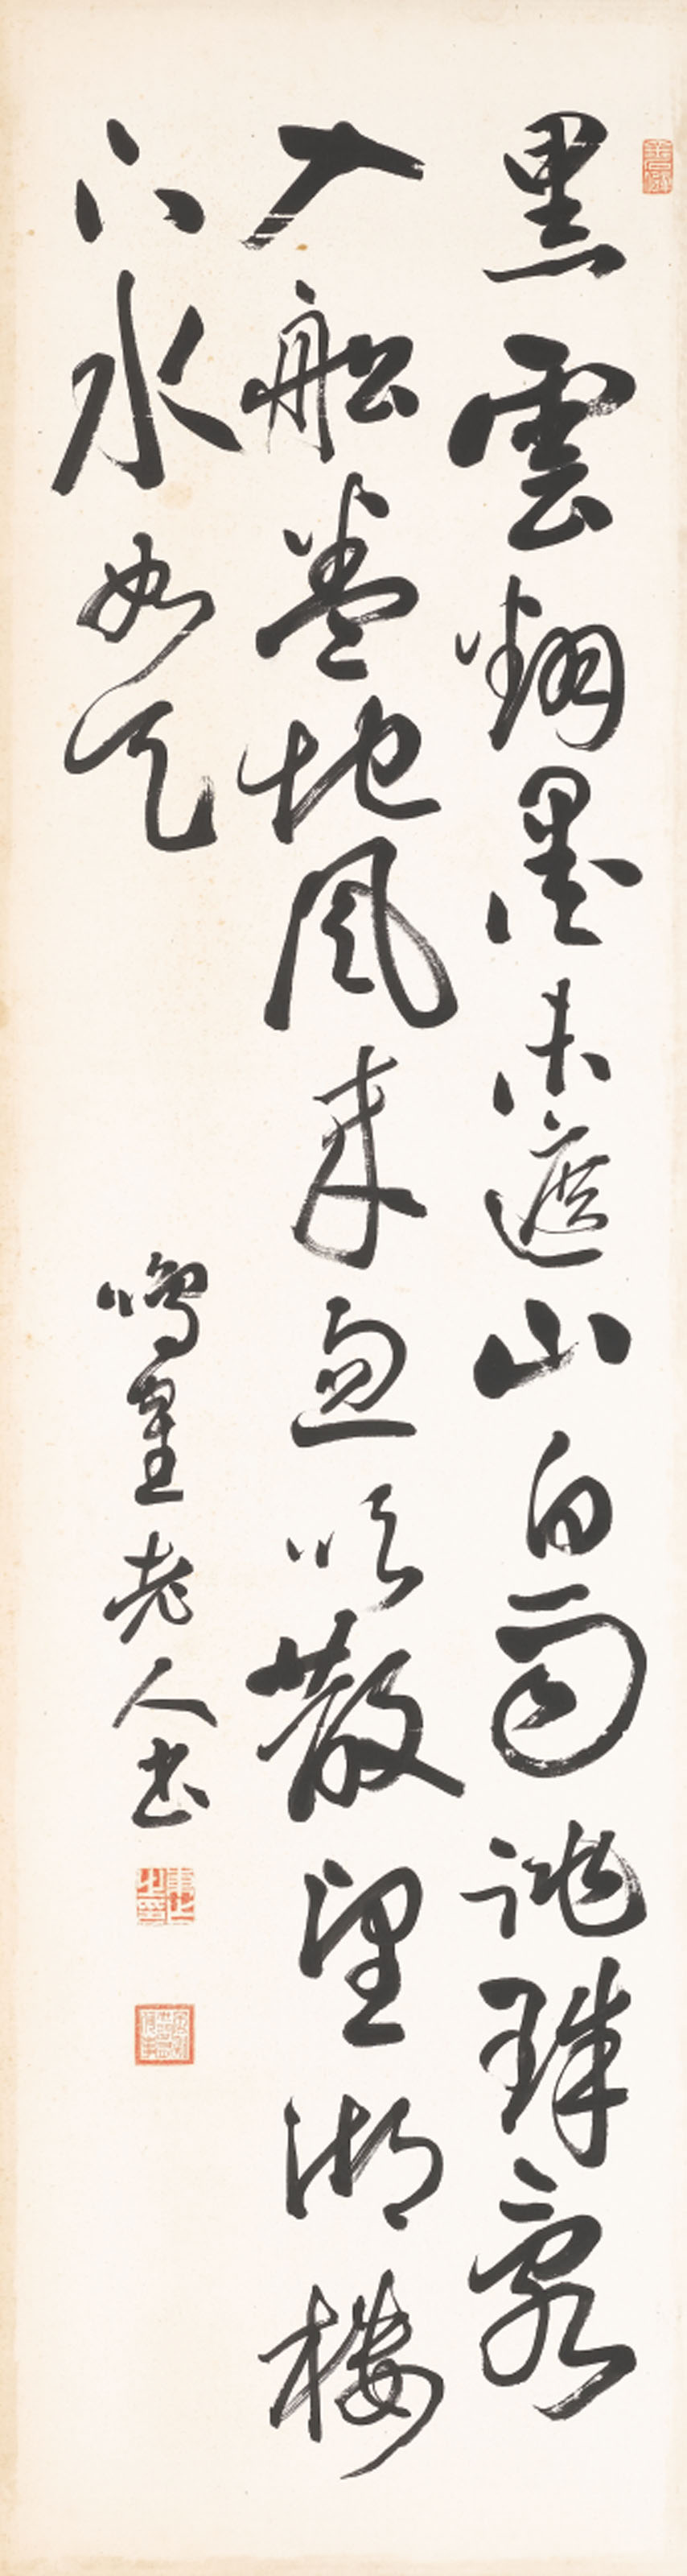 黑雲翻墨未遮山白雨跳珠亂
入船卷地風來忽吹散望湖樓
下水如天
鳴鶴老人書